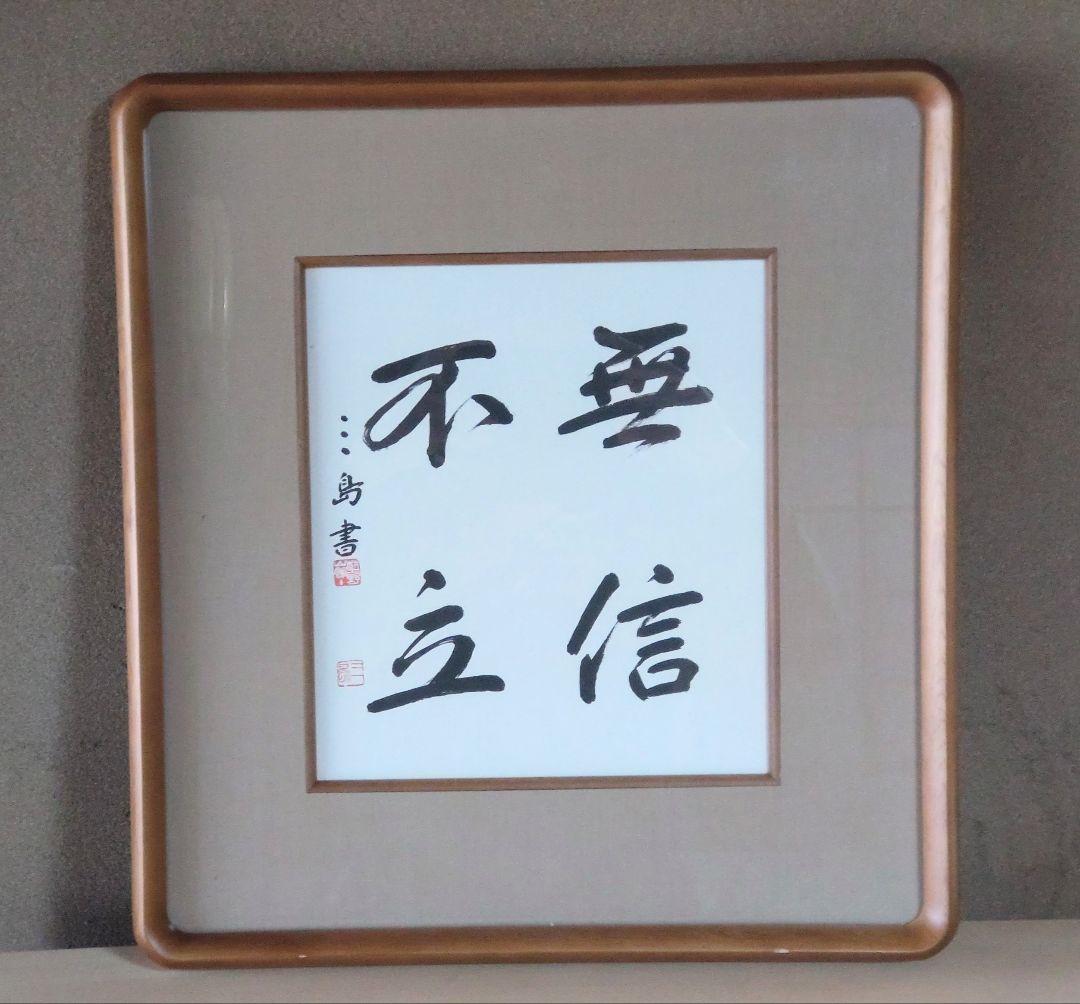 無信
不立
三島書